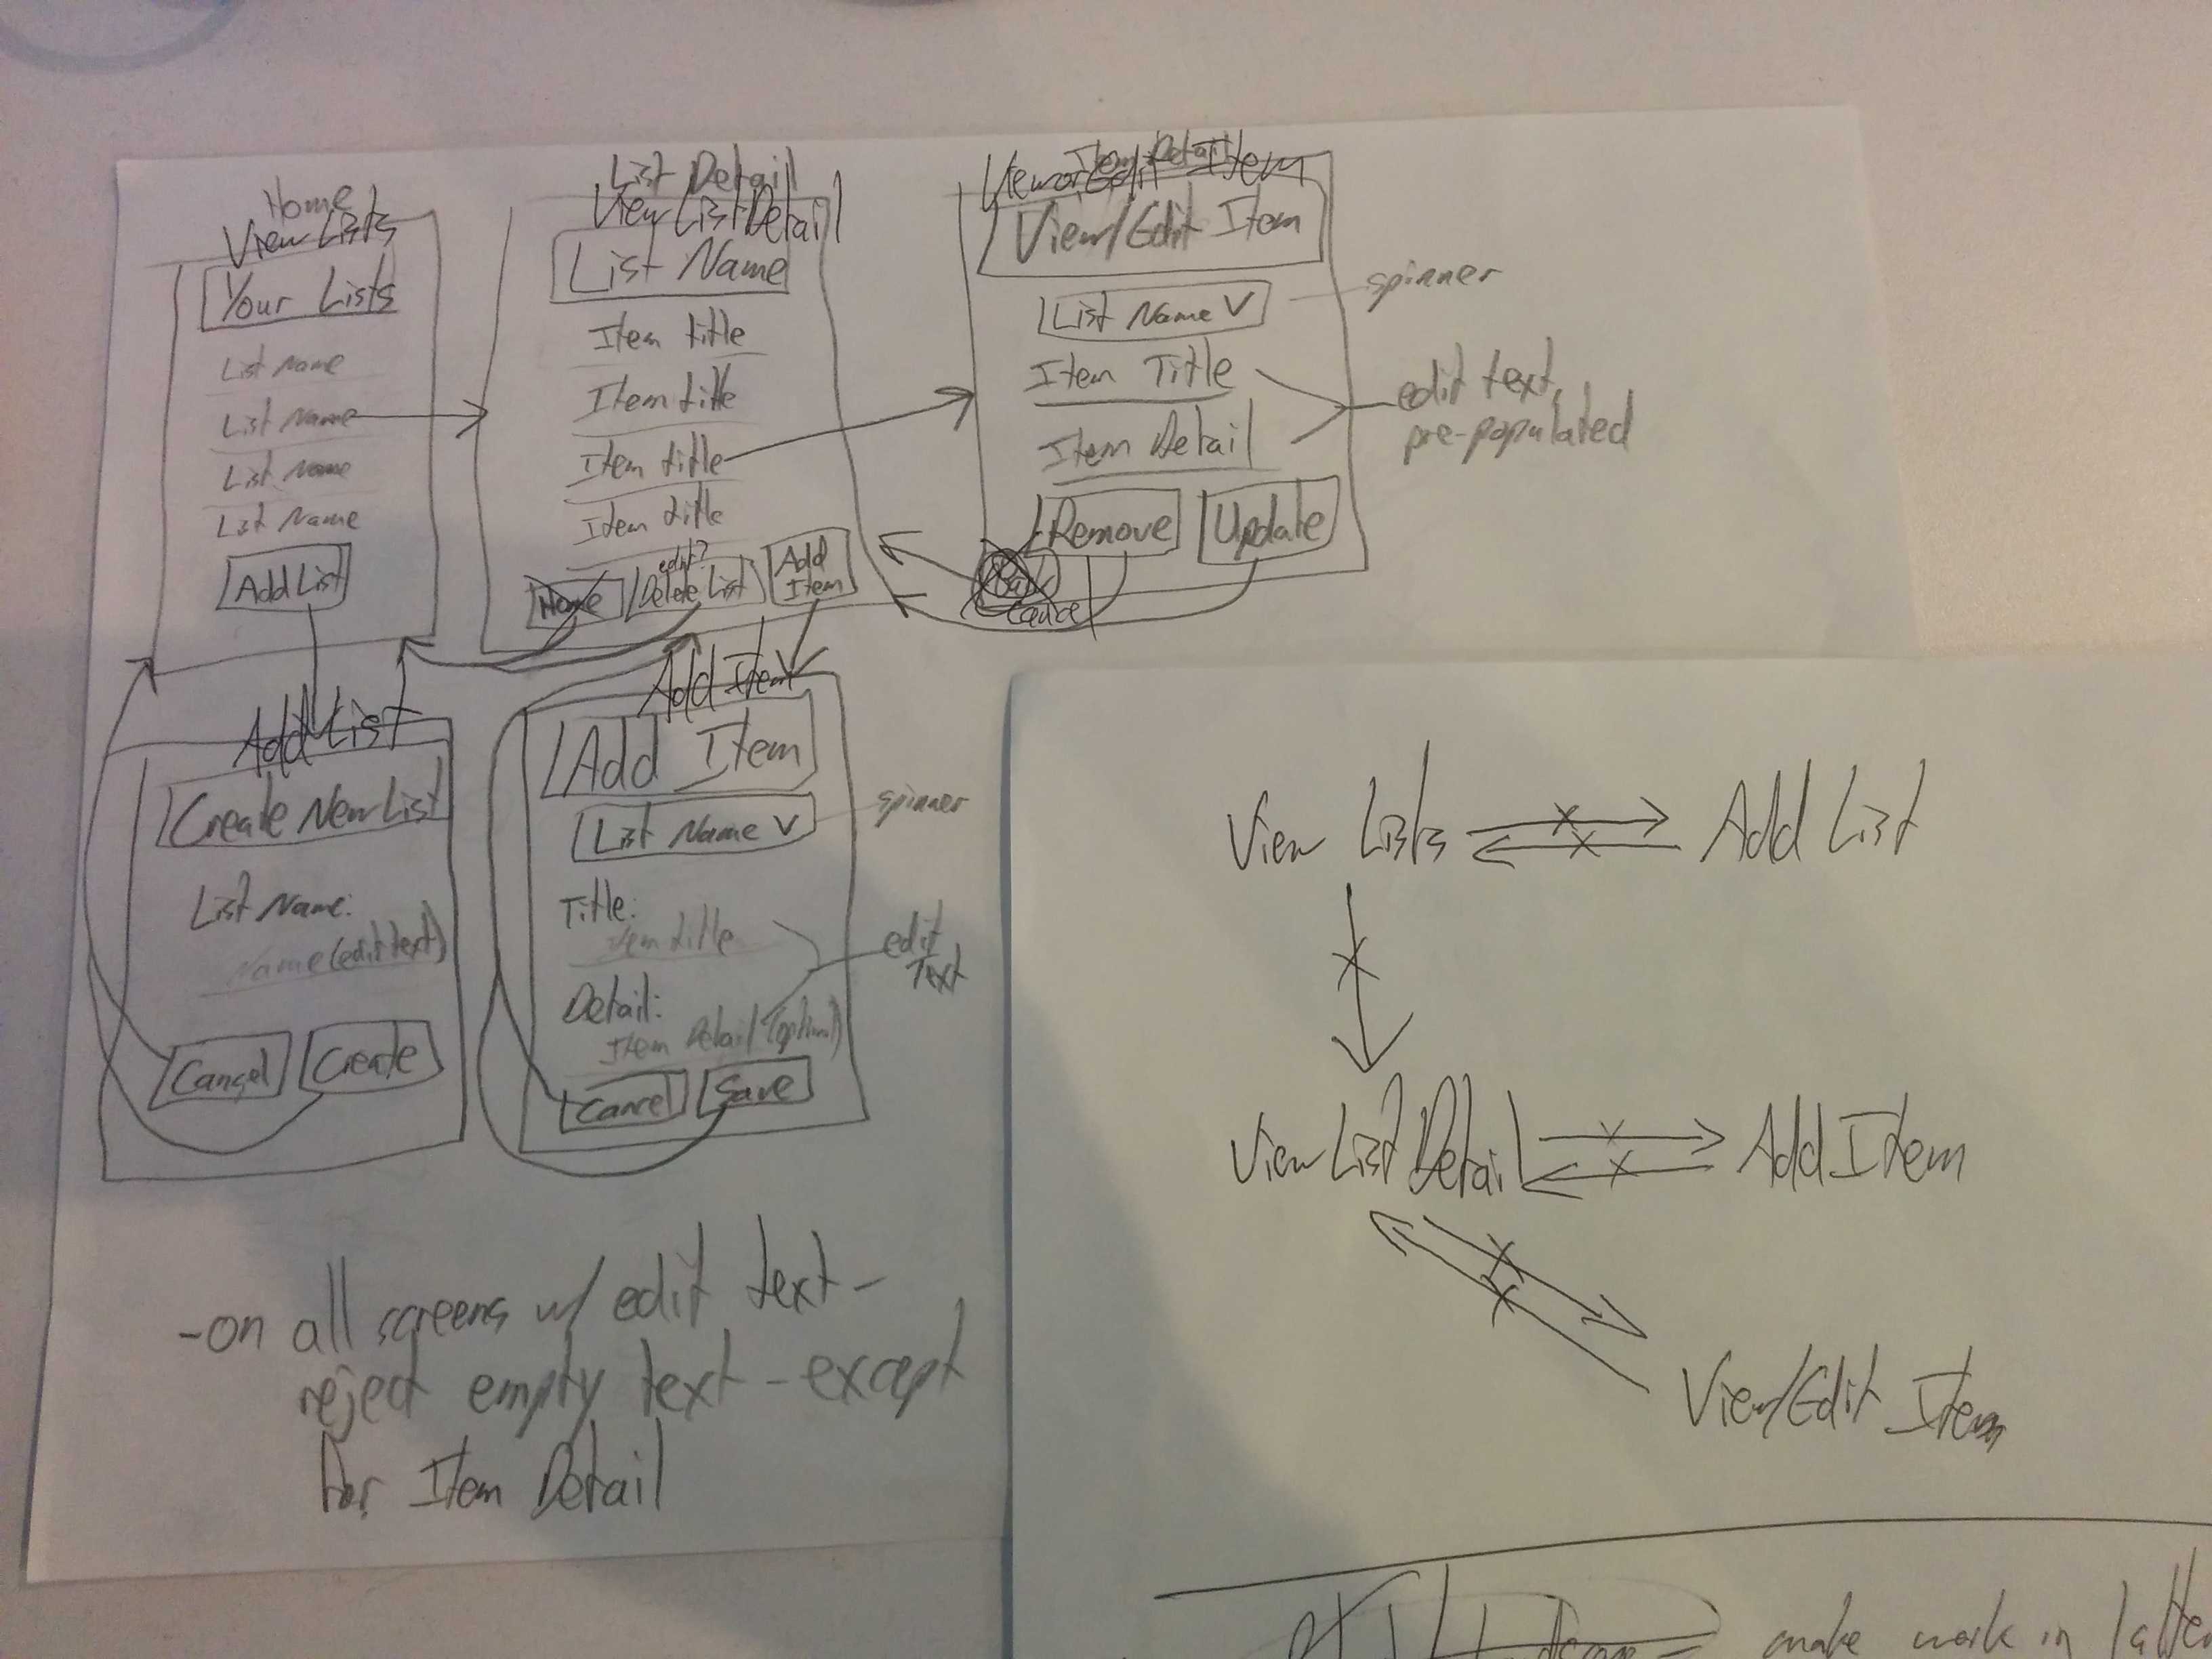 Home
View Lists
Your Lists
List Name
List Name
List Name
List Name
Add List
List Detail
View List Detail
List Name
Item title
Item title
Item title
Item title
Home
edit?
Delete List
Add
Item
Item Detail
View or Edit Item
View/Edit Item
List Name V
spinner
Item Title
Item Detail
edit text,
pre-populated
Remove
Update
Back
Cancel
Add List
Create New List
List Name:
Name (edit text)
Cancel
Create
Add Item
Add Item
List Name V
spinner
Title:
Item title
Detail:
Item Detail (optional)
edit
Text
Cancel
Save
-on all screens w/ edit text-
reject empty text - except
for Item Detail
View Lists
Add List
View List Detail
Add Item
View/Edit Item
make work in